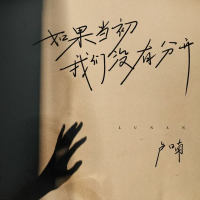 如果当初
我们没有分开
LUNAN
卢喃